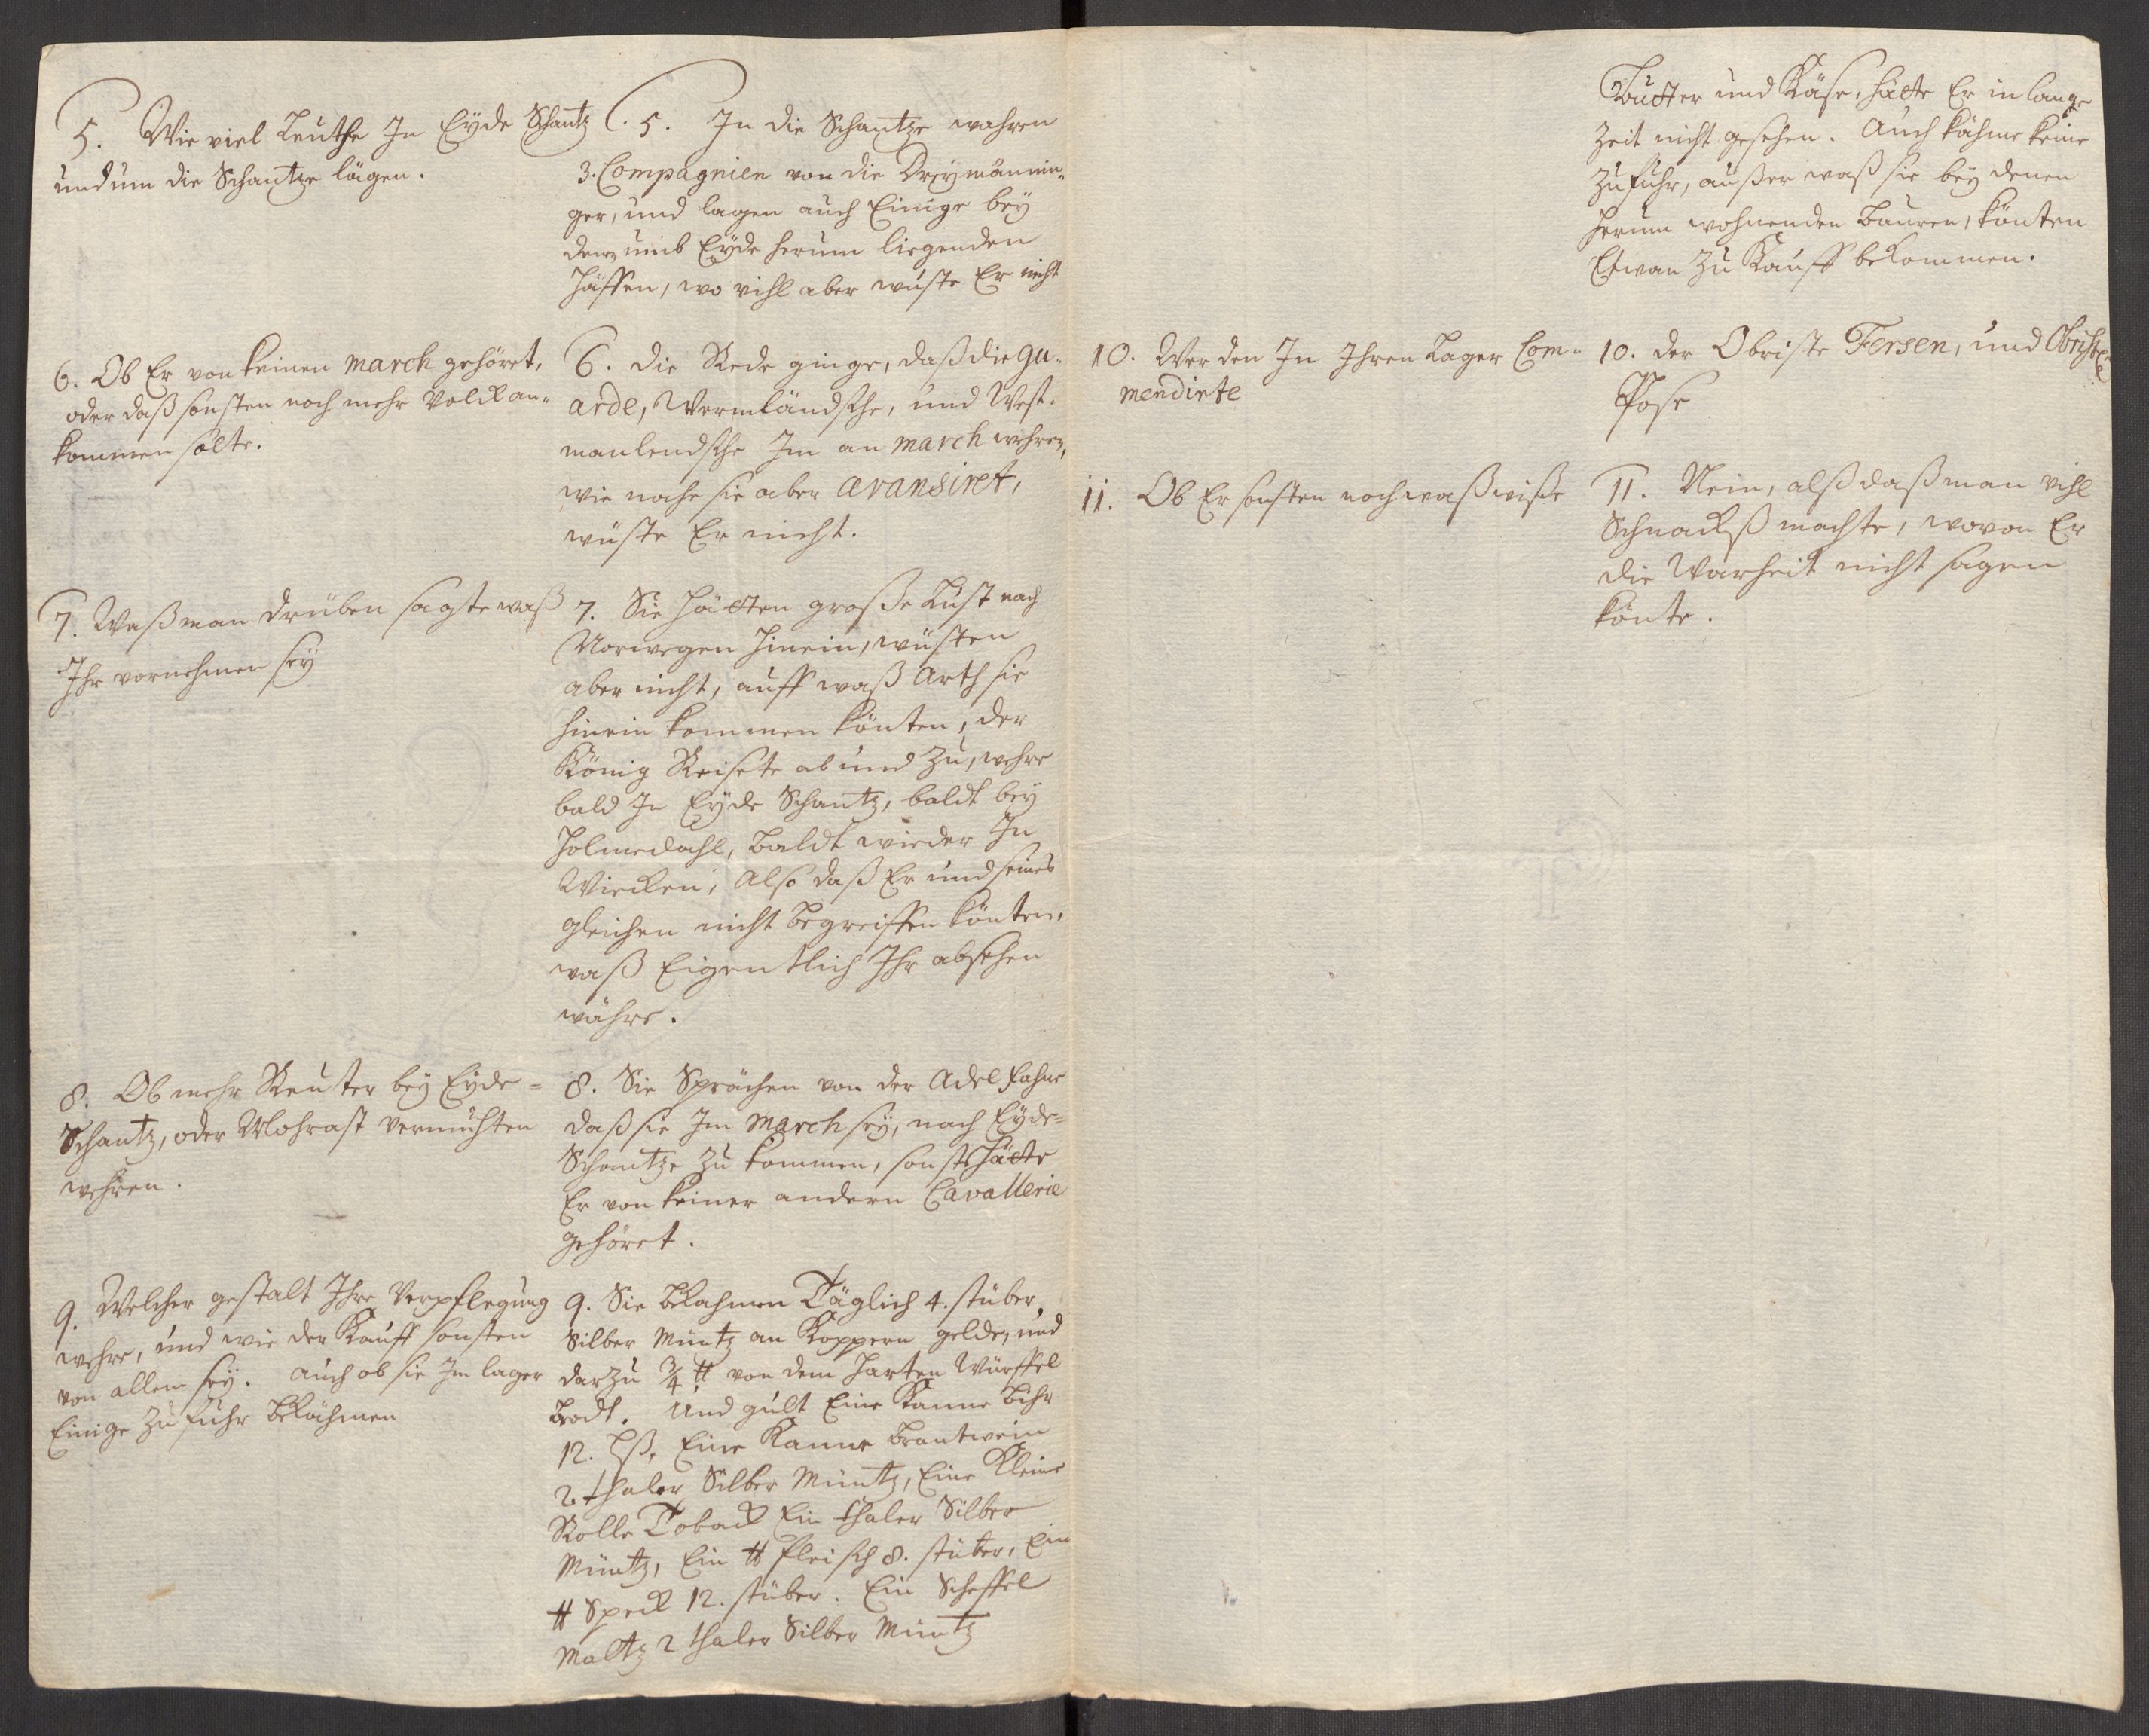 5. Wie viel Leuthe In Eyde Schantz
und um die Schantze lägen.
5. In die Schantze wahren
3. Compagnien von die Dreymännin-
ger, und lagen auch Einige bey
denen umb Eyde herum liegenden
Häffen, wo vihl aber wuste Er nicht
6. Ob Er von keinen march gehöret,
oder daß sonsten noch mehr Volck an-
kommen solte.
6. Die Rede ginge, daß die gu-
arde, Wermländsche, und West-
manlendsche Im an march wehren,
wie nahe sie aber avansiret,
wüste Er nicht.
7. Waß man drüben sagte waß
Ihr vornehmen sey
7. Sie hätten große Lust nach
Norwegen hinein, wüsten
aber nicht, auff waß Arth sie
hinein kommen könten, der
König Reisete ab und zu, wehre
bald In Eyde Schantz, baldt bey
Holmedahl, baldt wieder In
Wiecken, Also daß Er und seines
gleichen nicht begreiffen könten,
waß Eigentlich Ihr absehen
währe.
8. Ob mehr Reuter bey Eyde-
Schantz, oder Mohrast vermuhten
wehren.
8. Sie Sprächen von der Adel fahne
daß sie Im march sey, nach Eyde-
Schantze zu kommen, sonst hätte
Er von keiner andern Cavallerie
gehöret.
9. Welcher gestalt Ihre Verpflegung
wehre, und wie der Kauff sonsten
von allem sey. auch ob sie Im lager
Einige Zufuhr bekähmen
9. Sie bekahmen Täglich 4. stüber
Silber Müntz an Koppern gelde, und
darzu 3/4 ℔ von dem harten Würffel
brodt. Und gült Eine Kanne bihr
12. ß, Eine Kanne brantwein
2. thaler Silber Müntz, Eine Kleine
Rolle Toback Ein thaler Silber
Müntz, Ein ℔ fleisch 8. stüber, Ein
℔ Speck 12. stüber. Ein Scheffel
Maltz 2 thaler Silber Müntz
Butter und Käse, hätte Er in lange
Zeit nicht gesehen. Auch kähme keine
Zufuhr, außer waß sie bey denen
herum wohnenden Bauren, könten
Etwan zu Kauff bekommen.
10. Wer den In Ihren Lager Com-
mendirte
10. der Obriste Fersen, und Obriste
Pose
11. Ob Er sonsten noch waß wiße
11. Nein, alß daß man vihl
Schnackß machte, wovon Er
die Warheit nicht sagen
könte.